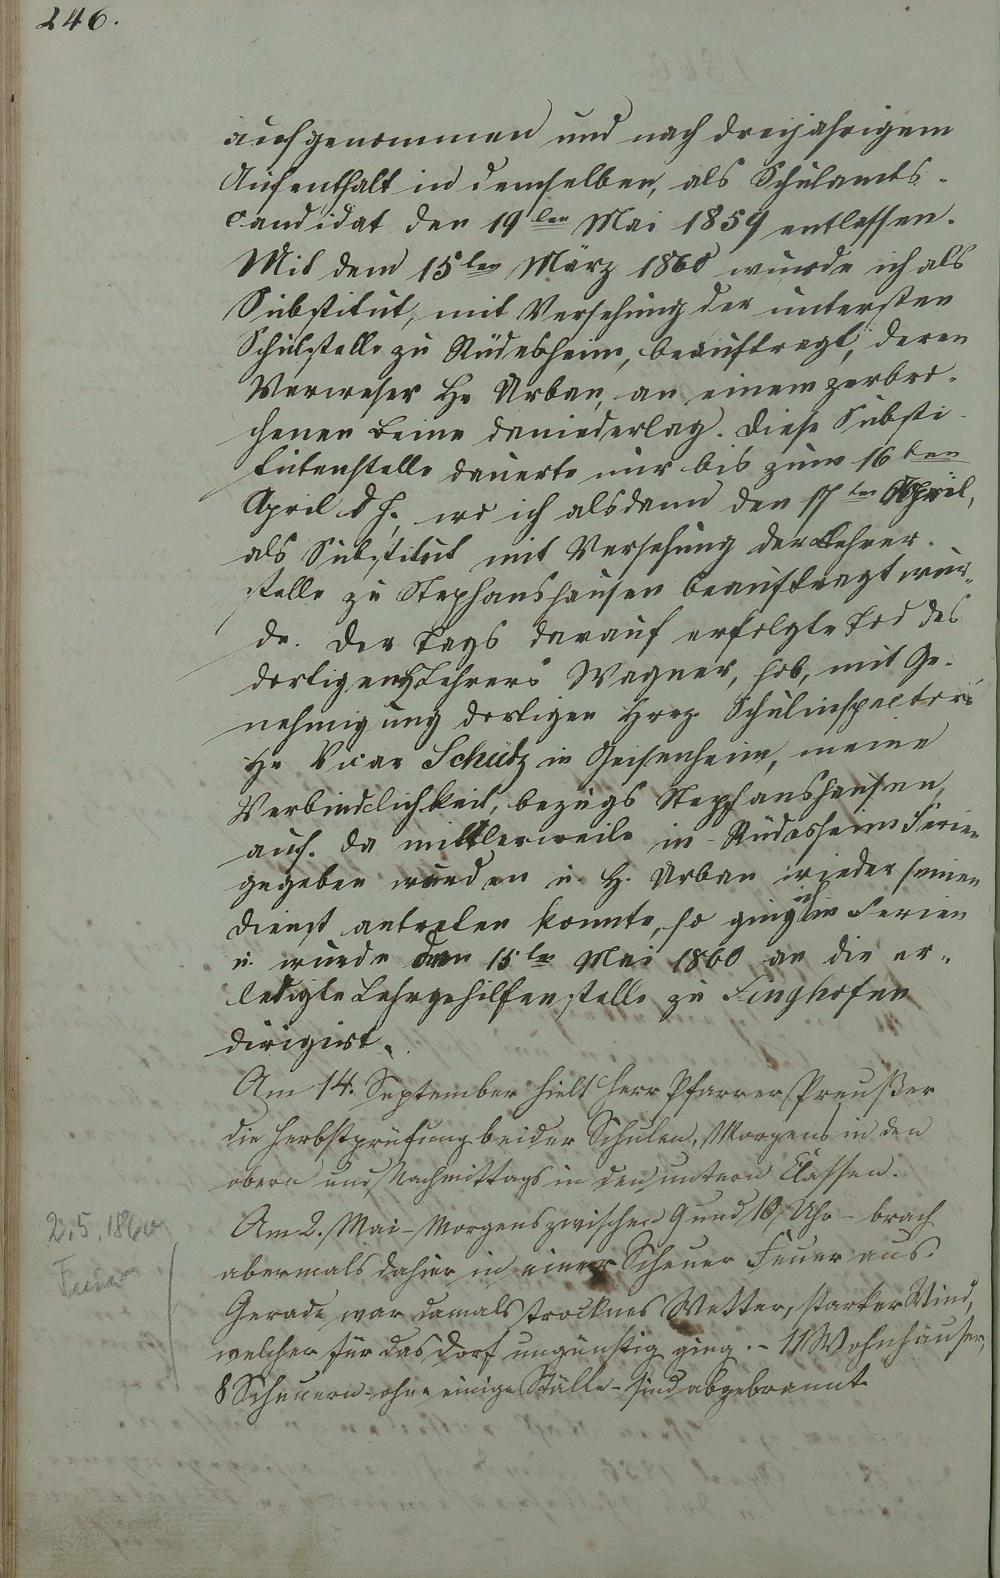 246.
aufgenommen und nach dreijährigem
Aufenthalt in demselben, als Schulamts-
candidat den 19ten Mai 1859 entlassen.
Mit dem 15ten März 1860 wurde ich als
Substitut, mit Versehung der untersten
Schulstelle zu Rüdesheim, beauftragt, deren
Verweser Hr Urban, an einem zerbro-
chenen Beine daniederlag. Diese Substi-
tutenstelle dauerte nur bis zum 16ten
April d J., wo ich alsdann den 17ten April,
als Substitut mit Versehung der Lehrer-
stelle zu Stephanshausen beauftragt wur-
de. Der Tags darauf erfolgte Tod des
dortigen Lehrers Wagner, hob, mit Ge-
nehmigung dortigen Herz. Schulinspectors
Hr Vicar Schütz in Geisenheim, meine
Verbindlichkeit, bezugs Stephanshausen,
auf. Da mittlerweile in Rüdesheim Ferien
gegeben wurden u. H. Urban wieder seinen
Dienst antreten konnte, so ging ich in Ferien
u. wurde den 15ten Mai 1860 an die er-
ledigte Lehrgehilfenstelle zu Singhofen
dirigirt.
Am 14. September hielt Herr Pfarrer Preußer
die Herbstprüfung beider Schulen, Morgens in den
obern und Nachmittags in den untern Classen.
2.5.1860
Feuer
Am 2. Mai - Morgens zwischen 9 und 10 Uhr - brach
abermals dahier in einer Scheuer Feuer aus.
Gerade war damals trocknes Wetter, starker Wind,
welcher für das Dorf ungünstig ging. - 11 Wohnhäuser,
8 Scheuern - ohne einige Ställe - sind abgebrannt.